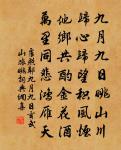 九月九日眺山川
歸心歸望積風煙
他鄉共酌金花酒
萬里同悲鴻雁天
盧照鄰九月九日玄武
山旅眺詞典網集